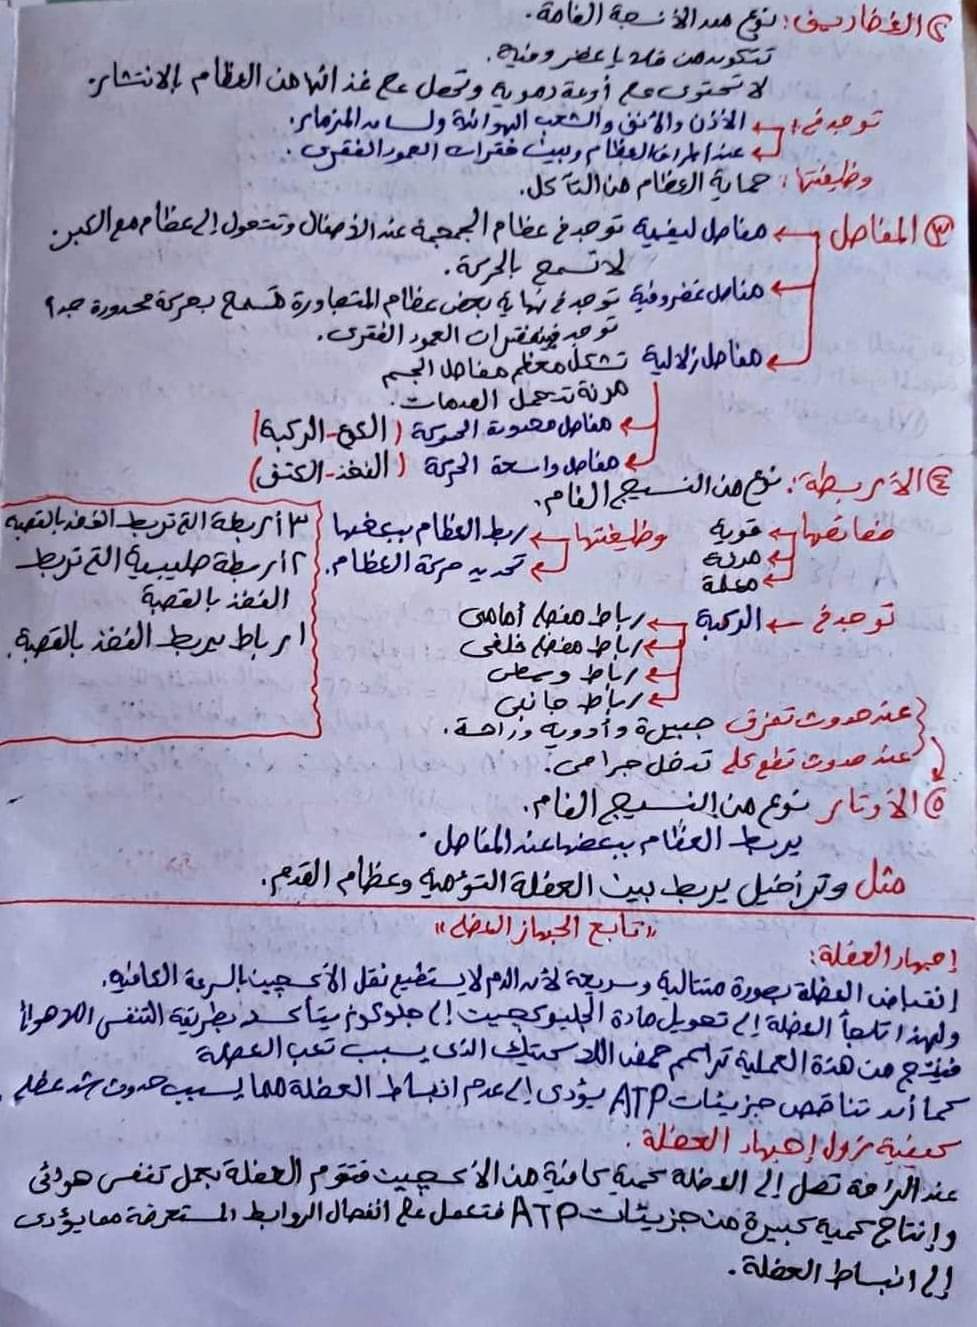 ② الغضاريف: نوع من الأنسجة الضامة.
تتكون من خلايا غضروفية.
لا تحتوى على أوعية دموية وتحصل على غذائها من العظام بالانتشار.
توجد في: الأذن والأنف والشعب الهوائية ولسان المزمار.
عند أطراف العظام وبين فقرات العمود الفقرى.
وظيفتها: حماية العظام من التآكل.
③ المفاصل
مفاصل ليفية توجد في عظام الجمجمة عند الأطفال وتتحول إلى عظام مع الكبر.
لا تسمح بالحركة.
مفاصل غضروفية توجد في نهاية بعض عظام المتجاورة تسمح بحركة محدودة جداً
توجد بين فقرات العمود الفقرى.
مفاصل زلالية تشكل معظم مفاصل الجسم
مرنة تتحمل الصدمات.
مفاصل محدودة الحركة (الكوع - الركبة)
مفاصل واسعة الحركة (الفخذ - الكتف)
④ الأربطة: نوع من النسيج الضام.
خصائصها قوية
مرنة
وظيفتها ربط العظام ببعضها
تحديد حركة العظام.
توجد في الركبة
رباط مفصلى أمامى
رباط مفصلى خلفى
رباط وسطى
رباط جانبى
٣ أربطة التى تربط الفخذ بالقصبة
٢ أربطة صليبية التى تربط
الفخذ بالقصبة
١ رباط يربط الفخذ بالقصبة.
عند حدوث تمزق جبيرة وأدوية وراحة.
عند حدوث قطع كلى تدخل جراحى.
⑤ الأوتار نوع من النسيج الضام.
يربط العظام ببعضها عند المفاصل.
مثل وتر أخيل يربط بين العضلة التوأمية وعظام القدم.
"تابع الجهاز العضلى"
إجهاد العضلة:
إنقباض العضلة بصورة متتالية وسريعة لأن الدم لا يستطيع نقل الأكسجين بالسرعة الكافية.
ولهذا تلجأ العضلة إلى تحويل مادة الجليكوجين إلى جلوكوز يتأكسد بطريقة التنفس اللاهوائى
فينتج من هذة العملية تراكم حمض اللاكتيك الذى يسبب تعب العضلة
كما أن تناقص جزيئات ATP يؤدى إلى عدم انبساط العضلة مما يسبب حدوث شد عضلى.
كيفية نزول إجهاد العضلة.
عند الراحة تصل إلى العضلة كمية كافية من الأكسجين فتقوم العضلة بعمل تنفس هوائى
وإنتاج كمية كبيرة من جزيئات ATP فتعمل على انفصال الروابط المستعرضة مما يؤدى
إلى انبساط العضلة.